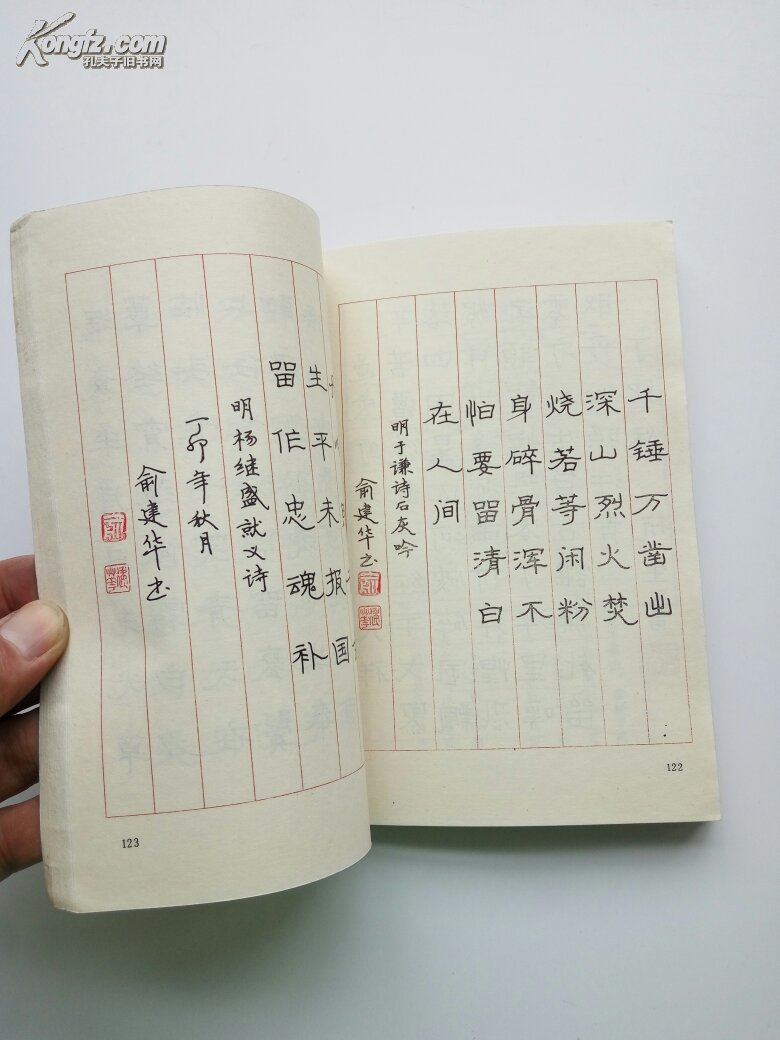 Kongfz.com
孔夫子旧书网
千锤万凿出
深山烈火焚
烧若等闲粉
身碎骨浑不
怕要留清白
在人间
明于谦诗石灰吟
俞建华书
122
生平未报国
留作忠魂补
明杨继盛就义诗
丁卯年秋月
俞建华书
123